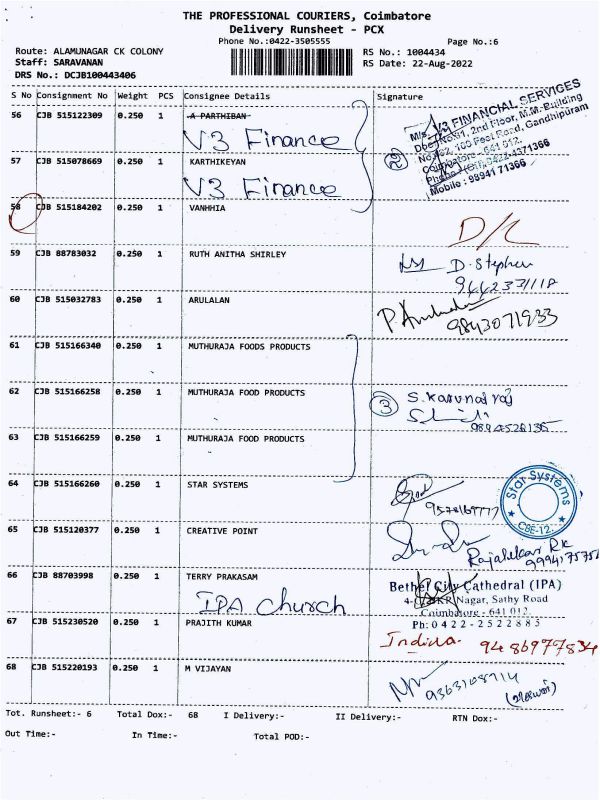 THE PROFESSIONAL COURIERS, Coimbatore
Delivery Runsheet - PCX
Phone No.:0422-3505555 Page No.:6
Route: ALAMUNAGAR CK COLONY RS No.: 1004434
Staff: SARAVANAN RS Date: 22-Aug-2022
DRS No.: DCJB100443406
S No Consignment No Weight PCS Consignee Details Signature
56 CJB 515122309 0.250 1 A PARTHIBAN
V3 Finance
M/s. V3 FINANCIAL SERVICES
2nd Floor, M.M. Building
100 Feet Road, Gandhipuram
Coimbatore - 641 012.
0422-4371366
Mobile : 98941 71366
2
57 CJB 515078669 0.250 1 KARTHIKEYAN
V3 Finance
58 CJB 515184202 0.250 1 VANHHIA
D/L
59 CJB 88783032 0.250 1 RUTH ANITHA SHIRLEY
D. Stephen
60 CJB 515032783 0.250 1 ARULALAN
9843071933
61 CJB 515166340 0.250 1 MUTHURAJA FOODS PRODUCTS
62 CJB 515166258 0.250 1 MUTHURAJA FOOD PRODUCTS
3 S. Karunal raj
9894528136
63 CJB 515166259 0.250 1 MUTHURAJA FOOD PRODUCTS
64 CJB 515166260 0.250 1 STAR SYSTEMS
Star Systems
CBE-12.
65 CJB 515120377 0.250 1 CREATIVE POINT
66 CJB 88703998 0.250 1 TERRY PRAKASAM
IPA Church
Bethel City Cathedral (IPA)
Nagar, Sathy Road
Coimbatore - 641 012.
Ph: 0422-2522883
67 CJB 515230520 0.250 1 PRAJITH KUMAR
9486977834
68 CJB 515220193 0.250 1 M VIJAYAN
Tot. Runsheet:- 6 Total Dox:- 68 I Delivery:- II Delivery:- RTN Dox:-
Out Time:- In Time:- Total POD:-